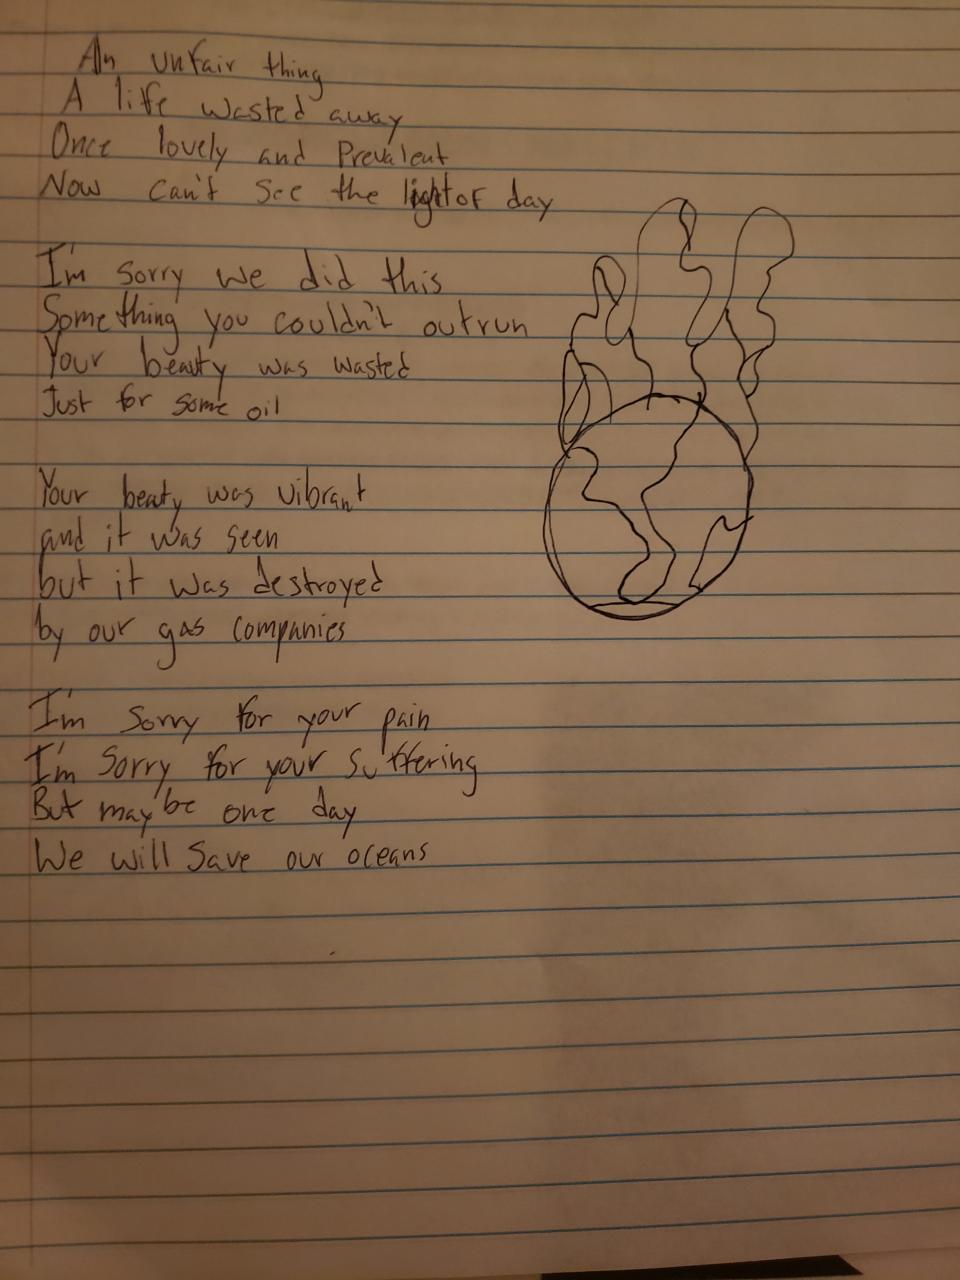 An unfair thing
A life wasted away
Once lovely and Prevalent
Now can't see the light of day
I'm sorry we did this
Something you couldn't outrun
Your beauty was wasted
Just for some oil
Your beaty was vibrant
and it was seen
but it was destroyed
by our gas companies
I'm Sorry for your pain
I'm Sorry for your suffering
But maybe one day
We will Save our oceans